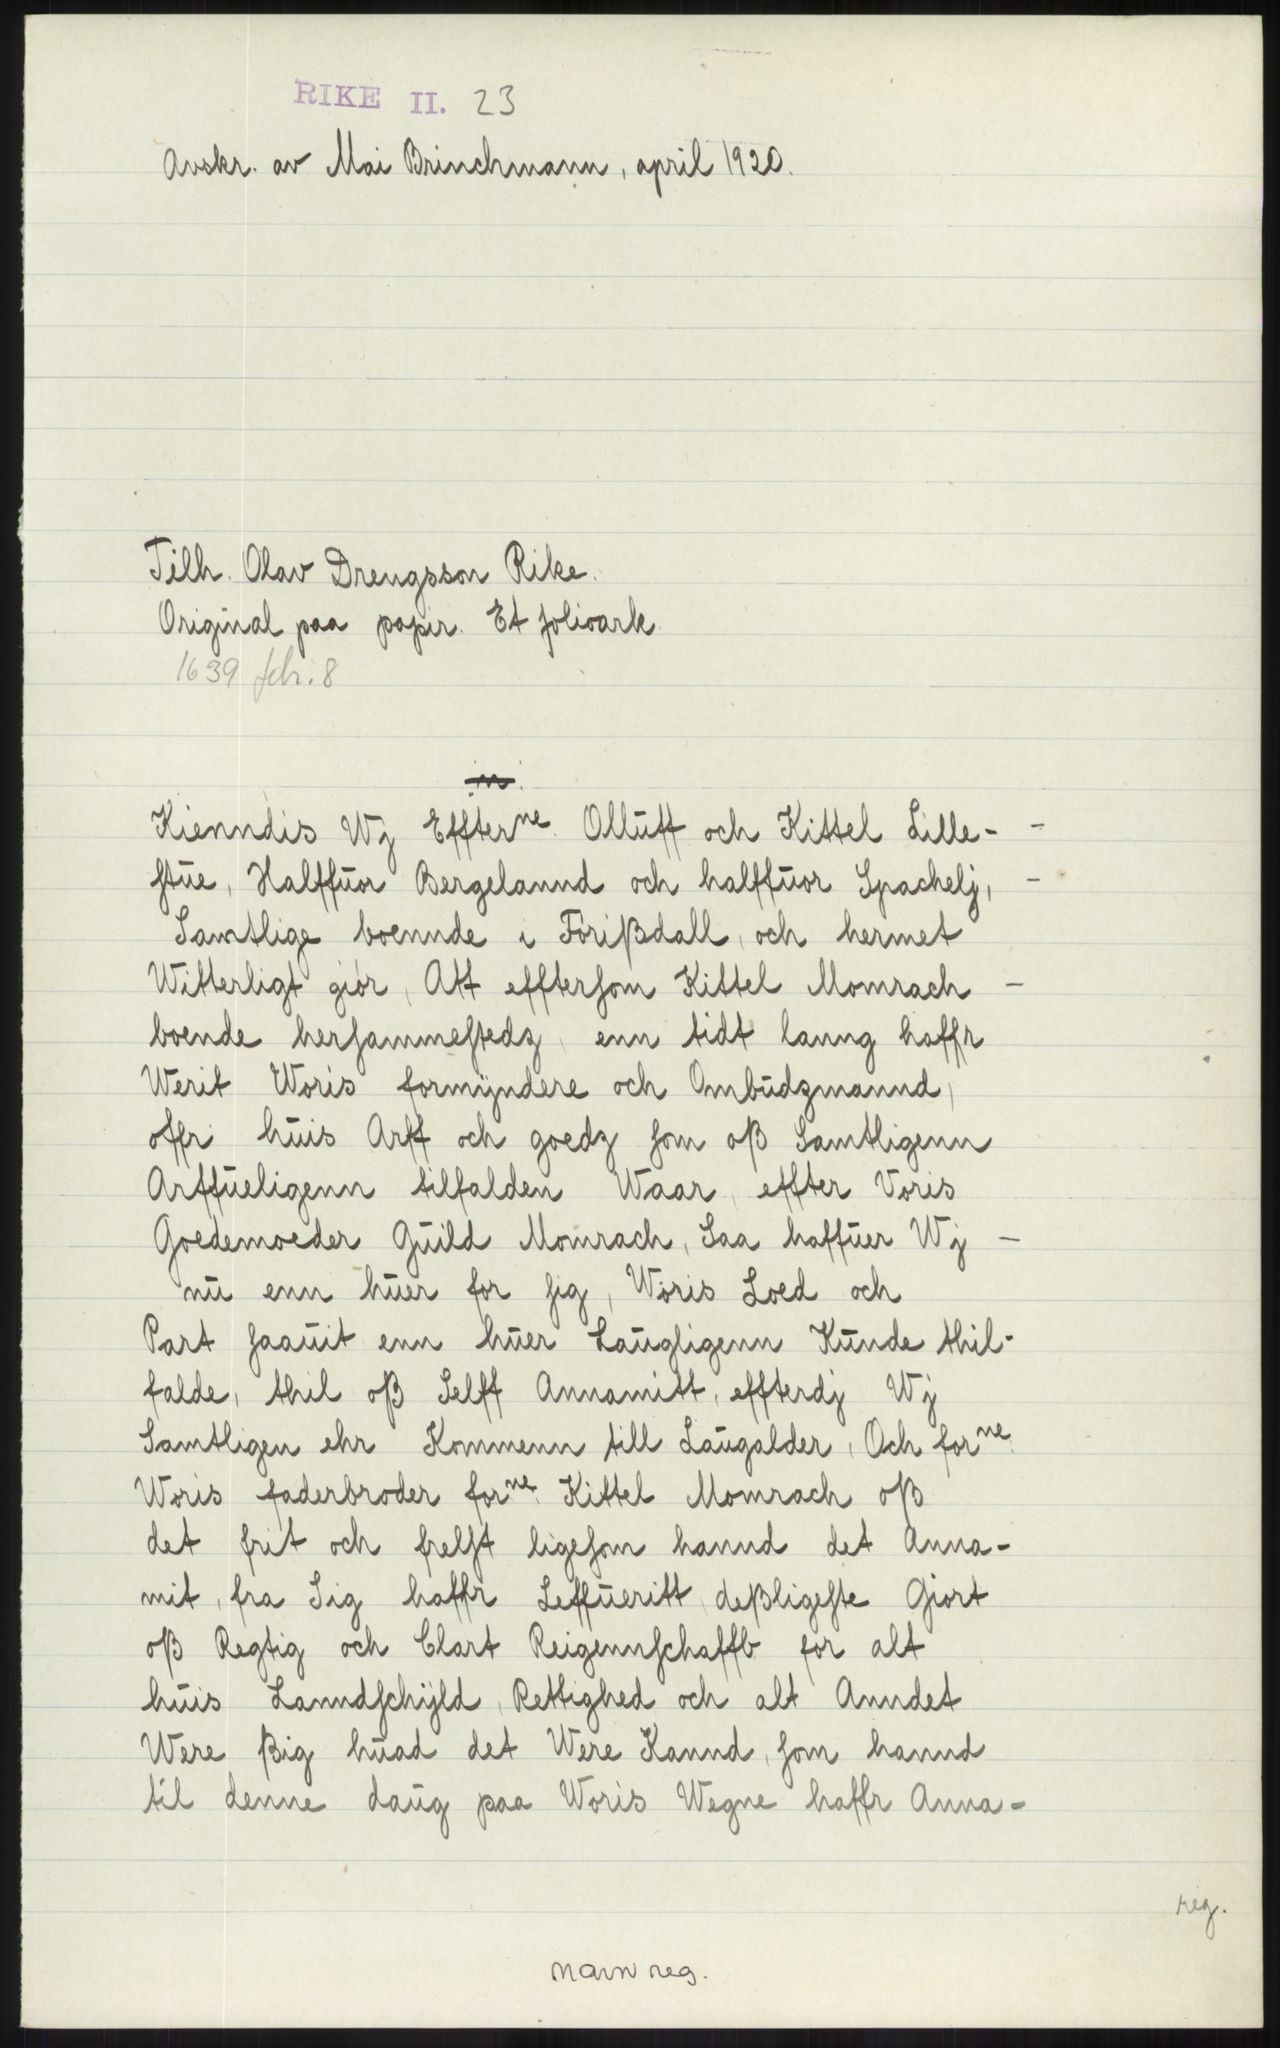 RIKE II. 23
Avskr. av Mai Brinchmann, april 1920.
Tilh. Olav Drengsson Rike.
Original paa papir. Et folioark.
1639 febr. 8
Kienndis Wj Effterne. Olluff och Kittel Lille-
stue, Halffuor Bergelannd och halffuor Spachelj,
Samtlige boennde i Förißdall, och hermet
Witterligt giör, Att efftersom Kittel Momrach
boende hersammestedz, enn tidt lanng haffr
Werit Woris formÿndere och Ombudzmannd,
offr huis Arff och goedz som oß Samtligenn
Arffueligenn tilfalden Waar, effter Voris
Goedemoeder Guild Momrach, Saa haffuer Wj
nu enn huer for sig, Woris Loed och
Part saauit enn huer Laugligenn Kunde thil-
falde, thil oß Selff Annamitt, effterdj Wj
Samtligen ehr Kommenn till Laugalder, Och forne.
Woris faderbroder forne. Kittel Momrach oß
det frit och frelst ligesom hannd det Anna-
mit, fra Sig haffr Leffueritt, deßligeste Giort
oß Regtig och Clart Reigennschaffb for alt
huis Lanndschÿld, Rettighed och alt Anndet
Were ßig huad det Were Kannd, som hannd
til denne daug paa Woris Wegne haffr Anna-
reg.
navnreg.